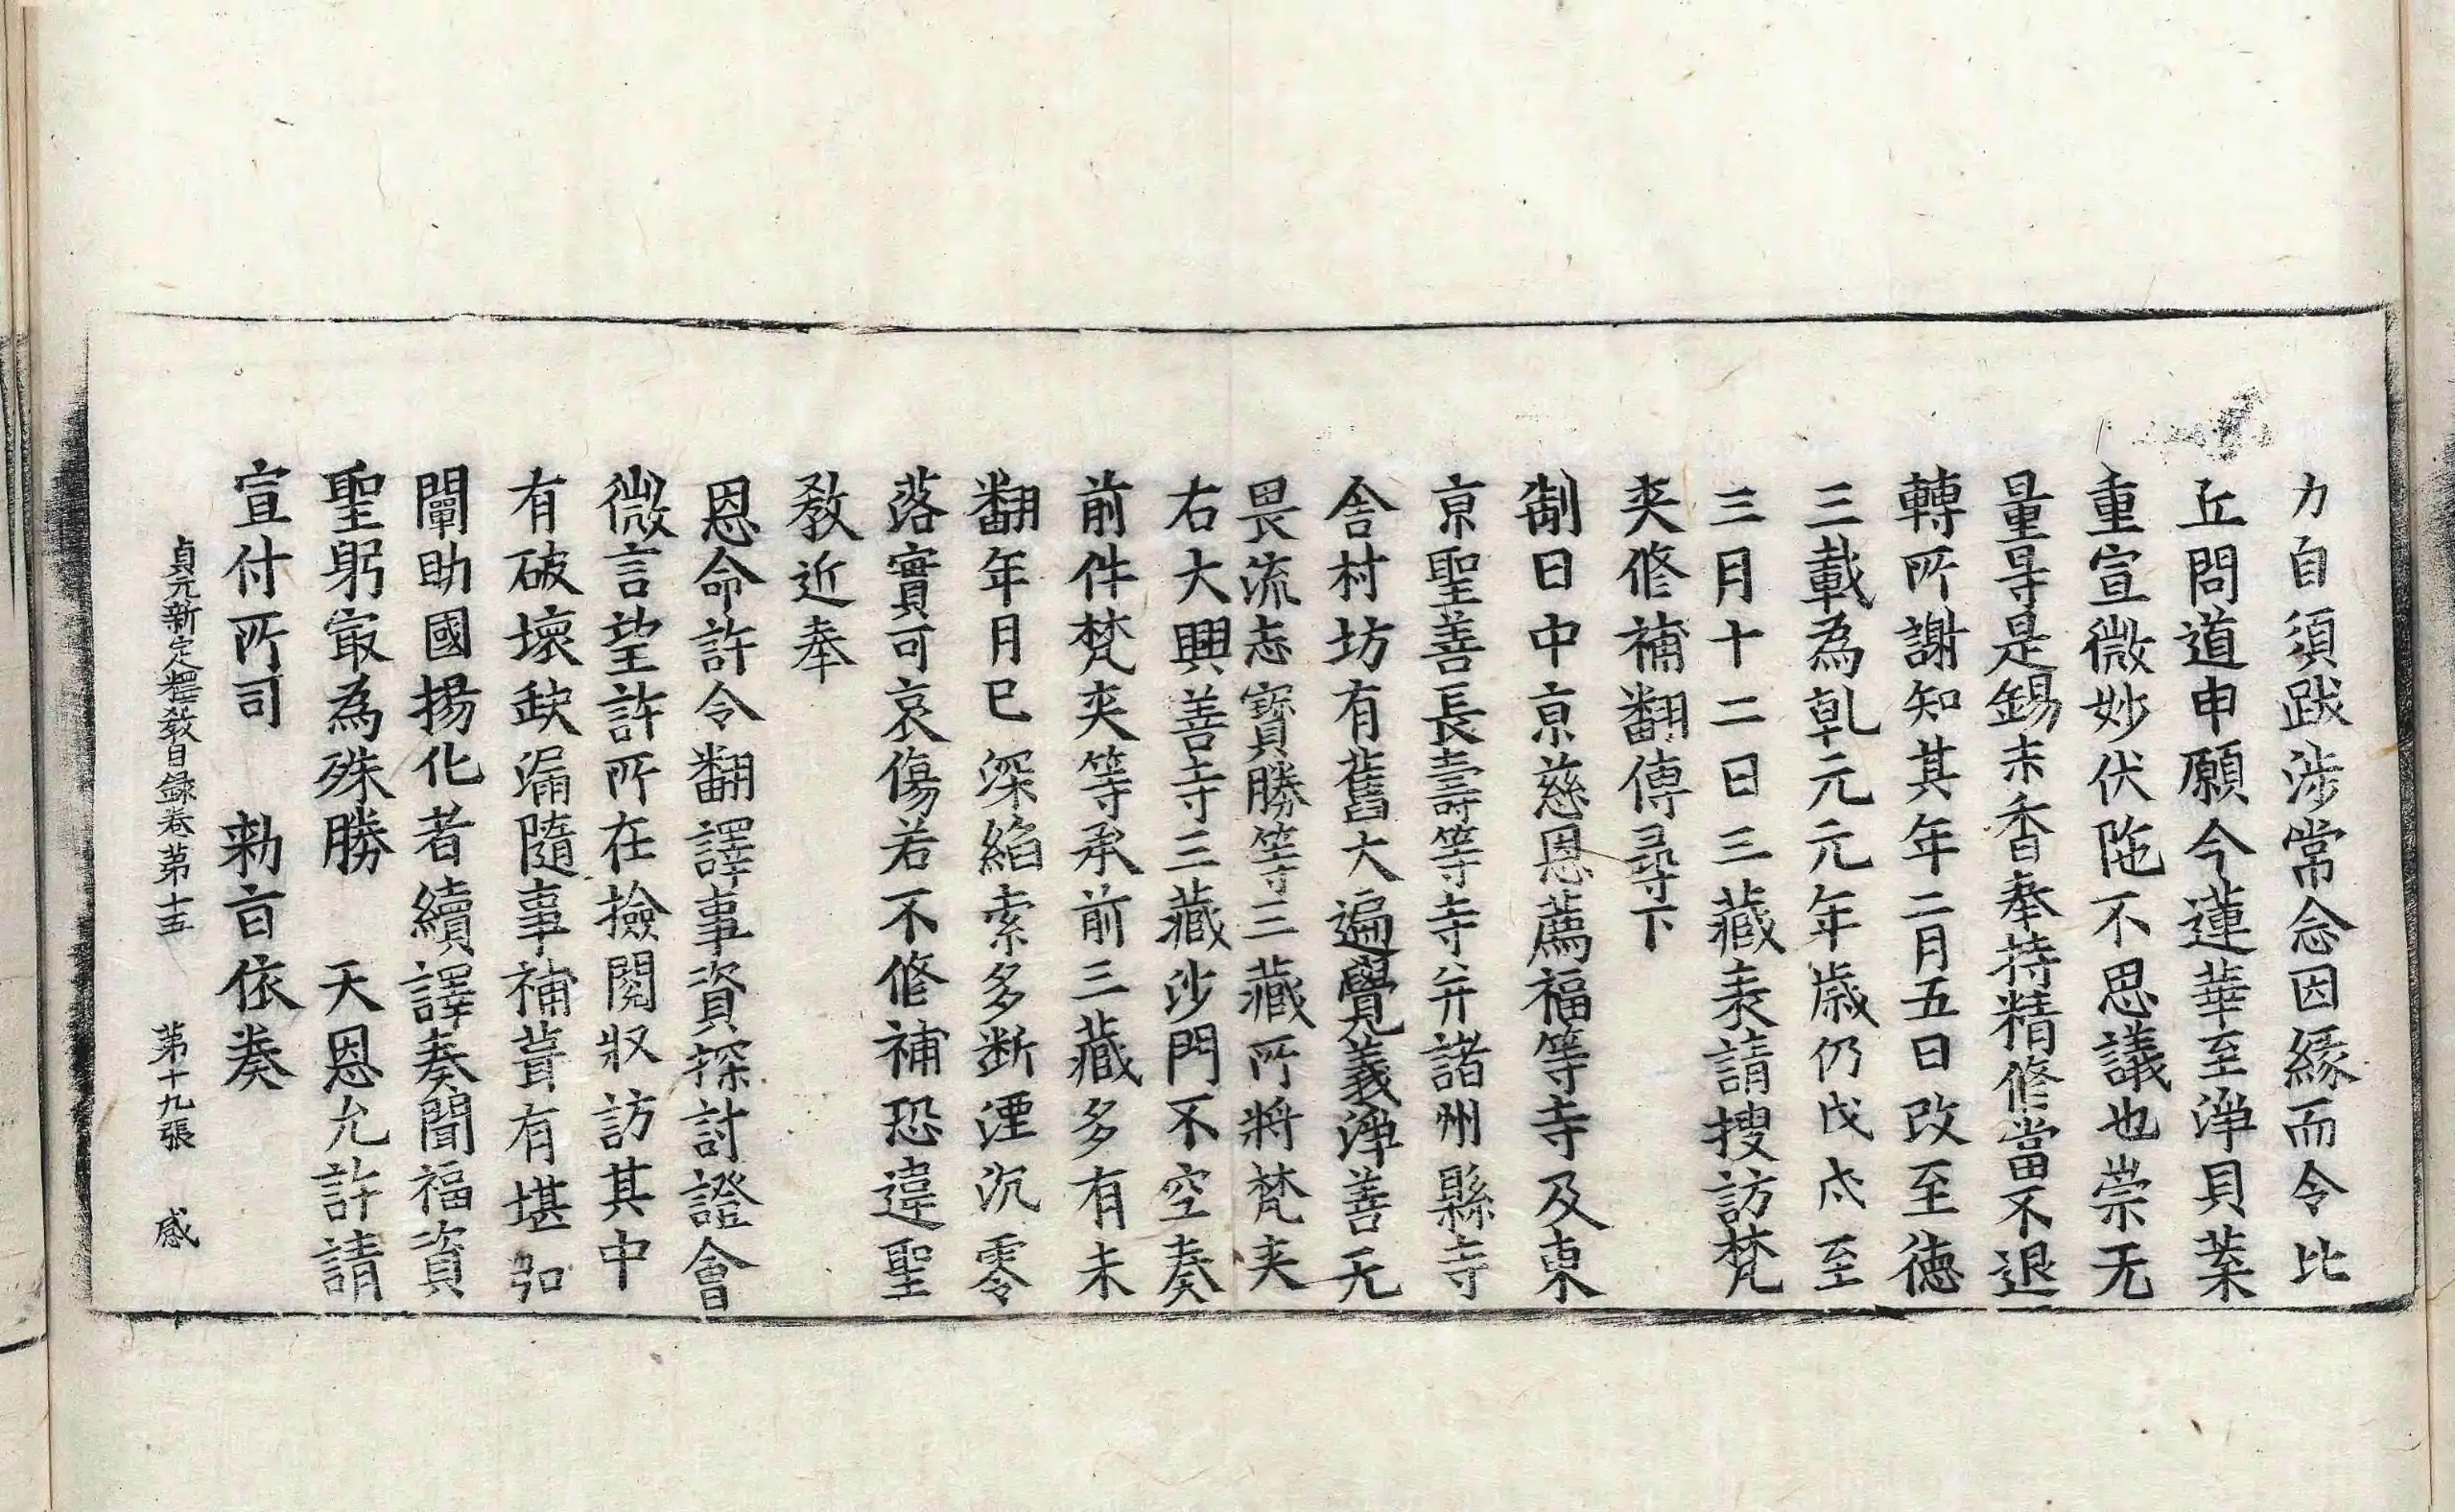 力自須跋涉常念因緣而令比
丘問道申願今蓮華至淨貝葉
重宣微妙伏陁不思議也崇无
量㝵是錫末香奉持精修當不退
轉所謝知其年二月五日改至德
三載為乹元元年歳仍戊戌至
三月十二日三藏表請搜訪梵
夾修補翻傳尋下
制曰中京慈恩薦福等寺及東
京聖善長壽等寺并諸州縣寺
舍村坊有舊大遍覺義淨善无
畏流志寶勝等三藏所將梵夾
右大興善寺三藏沙門不空奏
前件梵夾等承前三藏多有未
翻年月已深縚索多断湮沉零
落實可哀傷若不修補恐違聖
教近奉
恩命許令翻譯事資探討證會
微言望許所在撿閱収訪其中
有破壞缺漏隨事補葺有堪弘
闡助國揚化者續譯奏聞福資
聖躬冣為殊勝　天恩允許請
宣付所司　勑旨依奏
貞元新定釋教目録卷第十五　第十九張　感